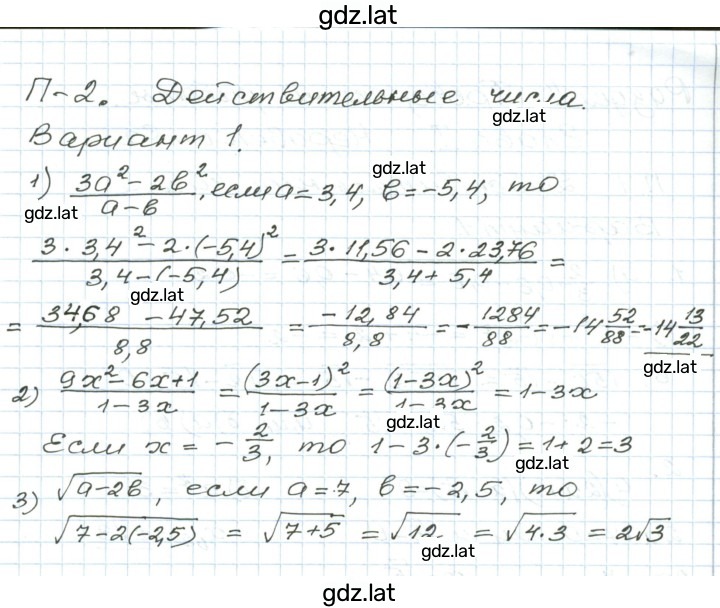 gdz.lat
П-2. Действительные числа.
gdz.lat
Вариант 1.
gdz.lat
1) (3a² - 2b²)/(a - b), если a = 3,4, b = -5,4, то
gdz.lat
(3 · 3,4² - 2 · (-5,4)²)/(3,4 - (-5,4)) = (3 · 11,56 - 2 · 23,76)/(3,4 + 5,4) =
gdz.lat
= (34,68 - 47,52)/8,8 = (-12,84)/(8,8) = -1284/88 = -14 52/88 = -14 13/22
gdz.lat
2) (9x² - 6x + 1)/(1 - 3x) = (3x - 1)²/(1 - 3x) = (1 - 3x)²/(1 - 3x) = 1 - 3x
gdz.lat
Если x = -2/3, то 1 - 3 · (-2/3) = 1 + 2 = 3
gdz.lat
3) √(a - 2b), если a = 7, b = -2,5, то
√(7 - 2(-2,5)) = √(7 + 5) = √12 = √(4 · 3) = 2√3
gdz.lat
gdz.lat